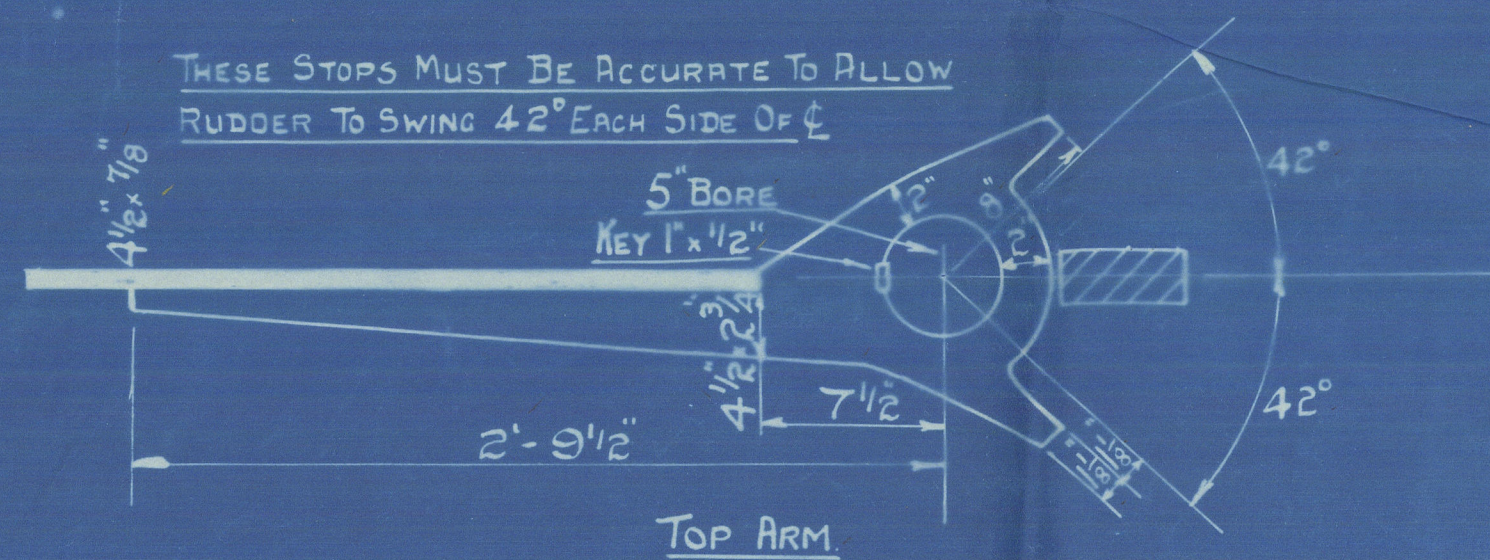 THESE STOPS MUST BE ACCURATE TO ALLOW
RUDDER TO SWING 42° EACH SIDE OF ℄
4 1/2" x 7/8
5" BORE
KEY 1" x 1/2"
2"
8"
2"
42°
4 1/2" x 2 3/4"
7 1/2"
42°
2'- 9 1/2"
TOP ARM.